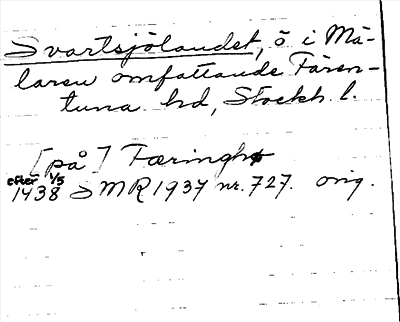 Svartsjölandet, ö i Mä-
laren omfattande Fären-
tuna hd, Stockh. l.
[på] Færingh
efter 1/5
1438 SMR 1937 nr. 727. orig.